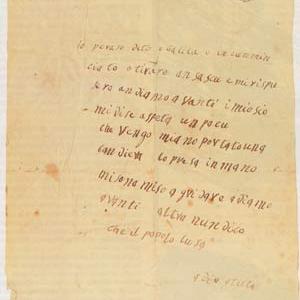 io poraso dito e salita o incomin
ciato a tirare an sasu e mi rispu
sero andiamo avanti i mio sio
mi dise aspeta un pocu
che vengo mi ano portato una
candiera lo presa in mano
mi sono miso a gridare adiamo
avanti altro nun dico
che il popolo luso
adio